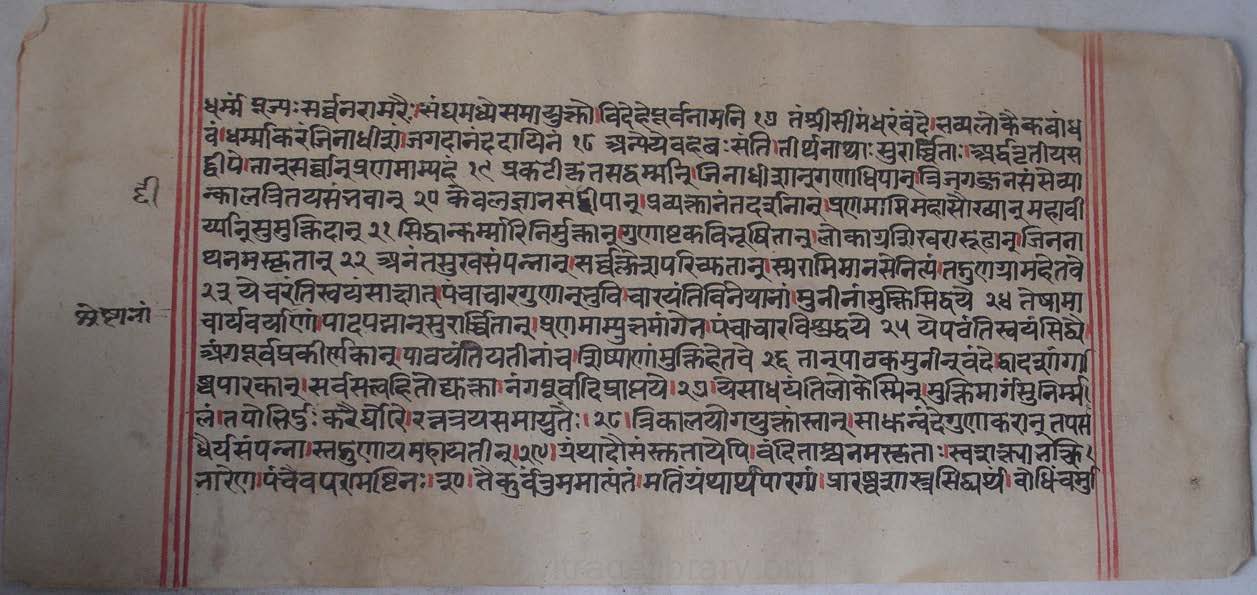 धर्म्मं पूज्यः सर्व्वनरामरैः।संघमध्ये समायुक्तो।विदेहे पूर्वनामनि १७ तं श्रीसीमंधरं वंदे।भव्यलोकैकबांध
वं।धर्म्माकरं जिनाधीशं।जगदानंददायिनं १८ अन्ये ये बहवः संति।तीर्थनाथाः सुरार्च्चिताः।अर्द्धतृतीयस
द्वीपे।तान् सर्व्वान् प्रणमाम्यहं १९ प्रकटीकृतसद्धर्म्मान्।जिनाधीशान् गणाधिपान्।त्रिजगज्जनसंसेव्या
न्कालत्रितयसंभवान् २० केवलज्ञानसद्दीपान्।प्रव्यक्तानंतदर्शनान्।प्रणमामि महासौख्यान् महावी
र्य्यान् सुमुक्तिदान् २१ सिद्धान्कर्म्मारिनिर्मुक्तान्।गुणाष्टकविभूषितान्।लोकाग्रशिखरारूढान्।जिनना
थनमस्कृतान् २२ अनंतसुखसंपन्नान्।सर्व्वक्लेशपरिच्युतान्।स्मरामि मानसे नित्यं।तद्गुणग्रामहेतवे
२३ ये चरंति स्वयं साक्षात्।पंचाचारगुणान् भुवि।चारयंति विनेयानां।मुनीनां मुक्तिसिद्धये २४ तेषामा
चार्यवर्याणां।पादपद्मान् सुरार्च्चितान्।प्रणमाम्युत्तमांगेन।पंचाचारविशुद्धये २५ ये पठंति स्वयं सिद्ध्यै
अंगपूर्वप्रकीर्णकान्।पाठयंति यतीनां च।शिष्याणां मुक्तिहेतवे २६ तान् पाठकमुनीन् वंदे।द्वादशांगा
ब्धिपारकान्।सर्वसत्त्वहितोद्युक्तानंगपूर्वादिप्राप्तये।२७।ये साधयंति लोकेस्मिन्।मुक्तिमार्गं सुनिर्म्म।
लं।तपोभिर्दुःकरैर्घोरै।रत्नत्रयसमायुतैः।२८।त्रिकालयोगयुक्तांस्तान्।साधून्वंदे गुणाकरान् तपसे
धैर्यसंपन्ना।स्तद्गुणाय महायतीन्।२९।ग्रंथादौ संस्तुता येपि।वंदिताश्च नमस्कृताः
नारेण।पंचैव परमेष्टिनः।३०।ते कुर्वंतु ममात्यंतं।मतिं ग्रंथार्थपारगां।प्रारब्ध
दी
श्रेष्टानां